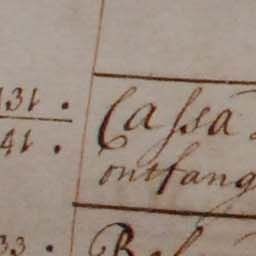 131 .
41 .
Cassa
ontfang
33 .